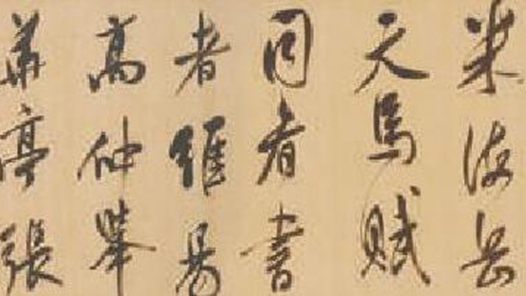 米海岳
天馬賦
同看書
者維易
高仲舉
華亭張